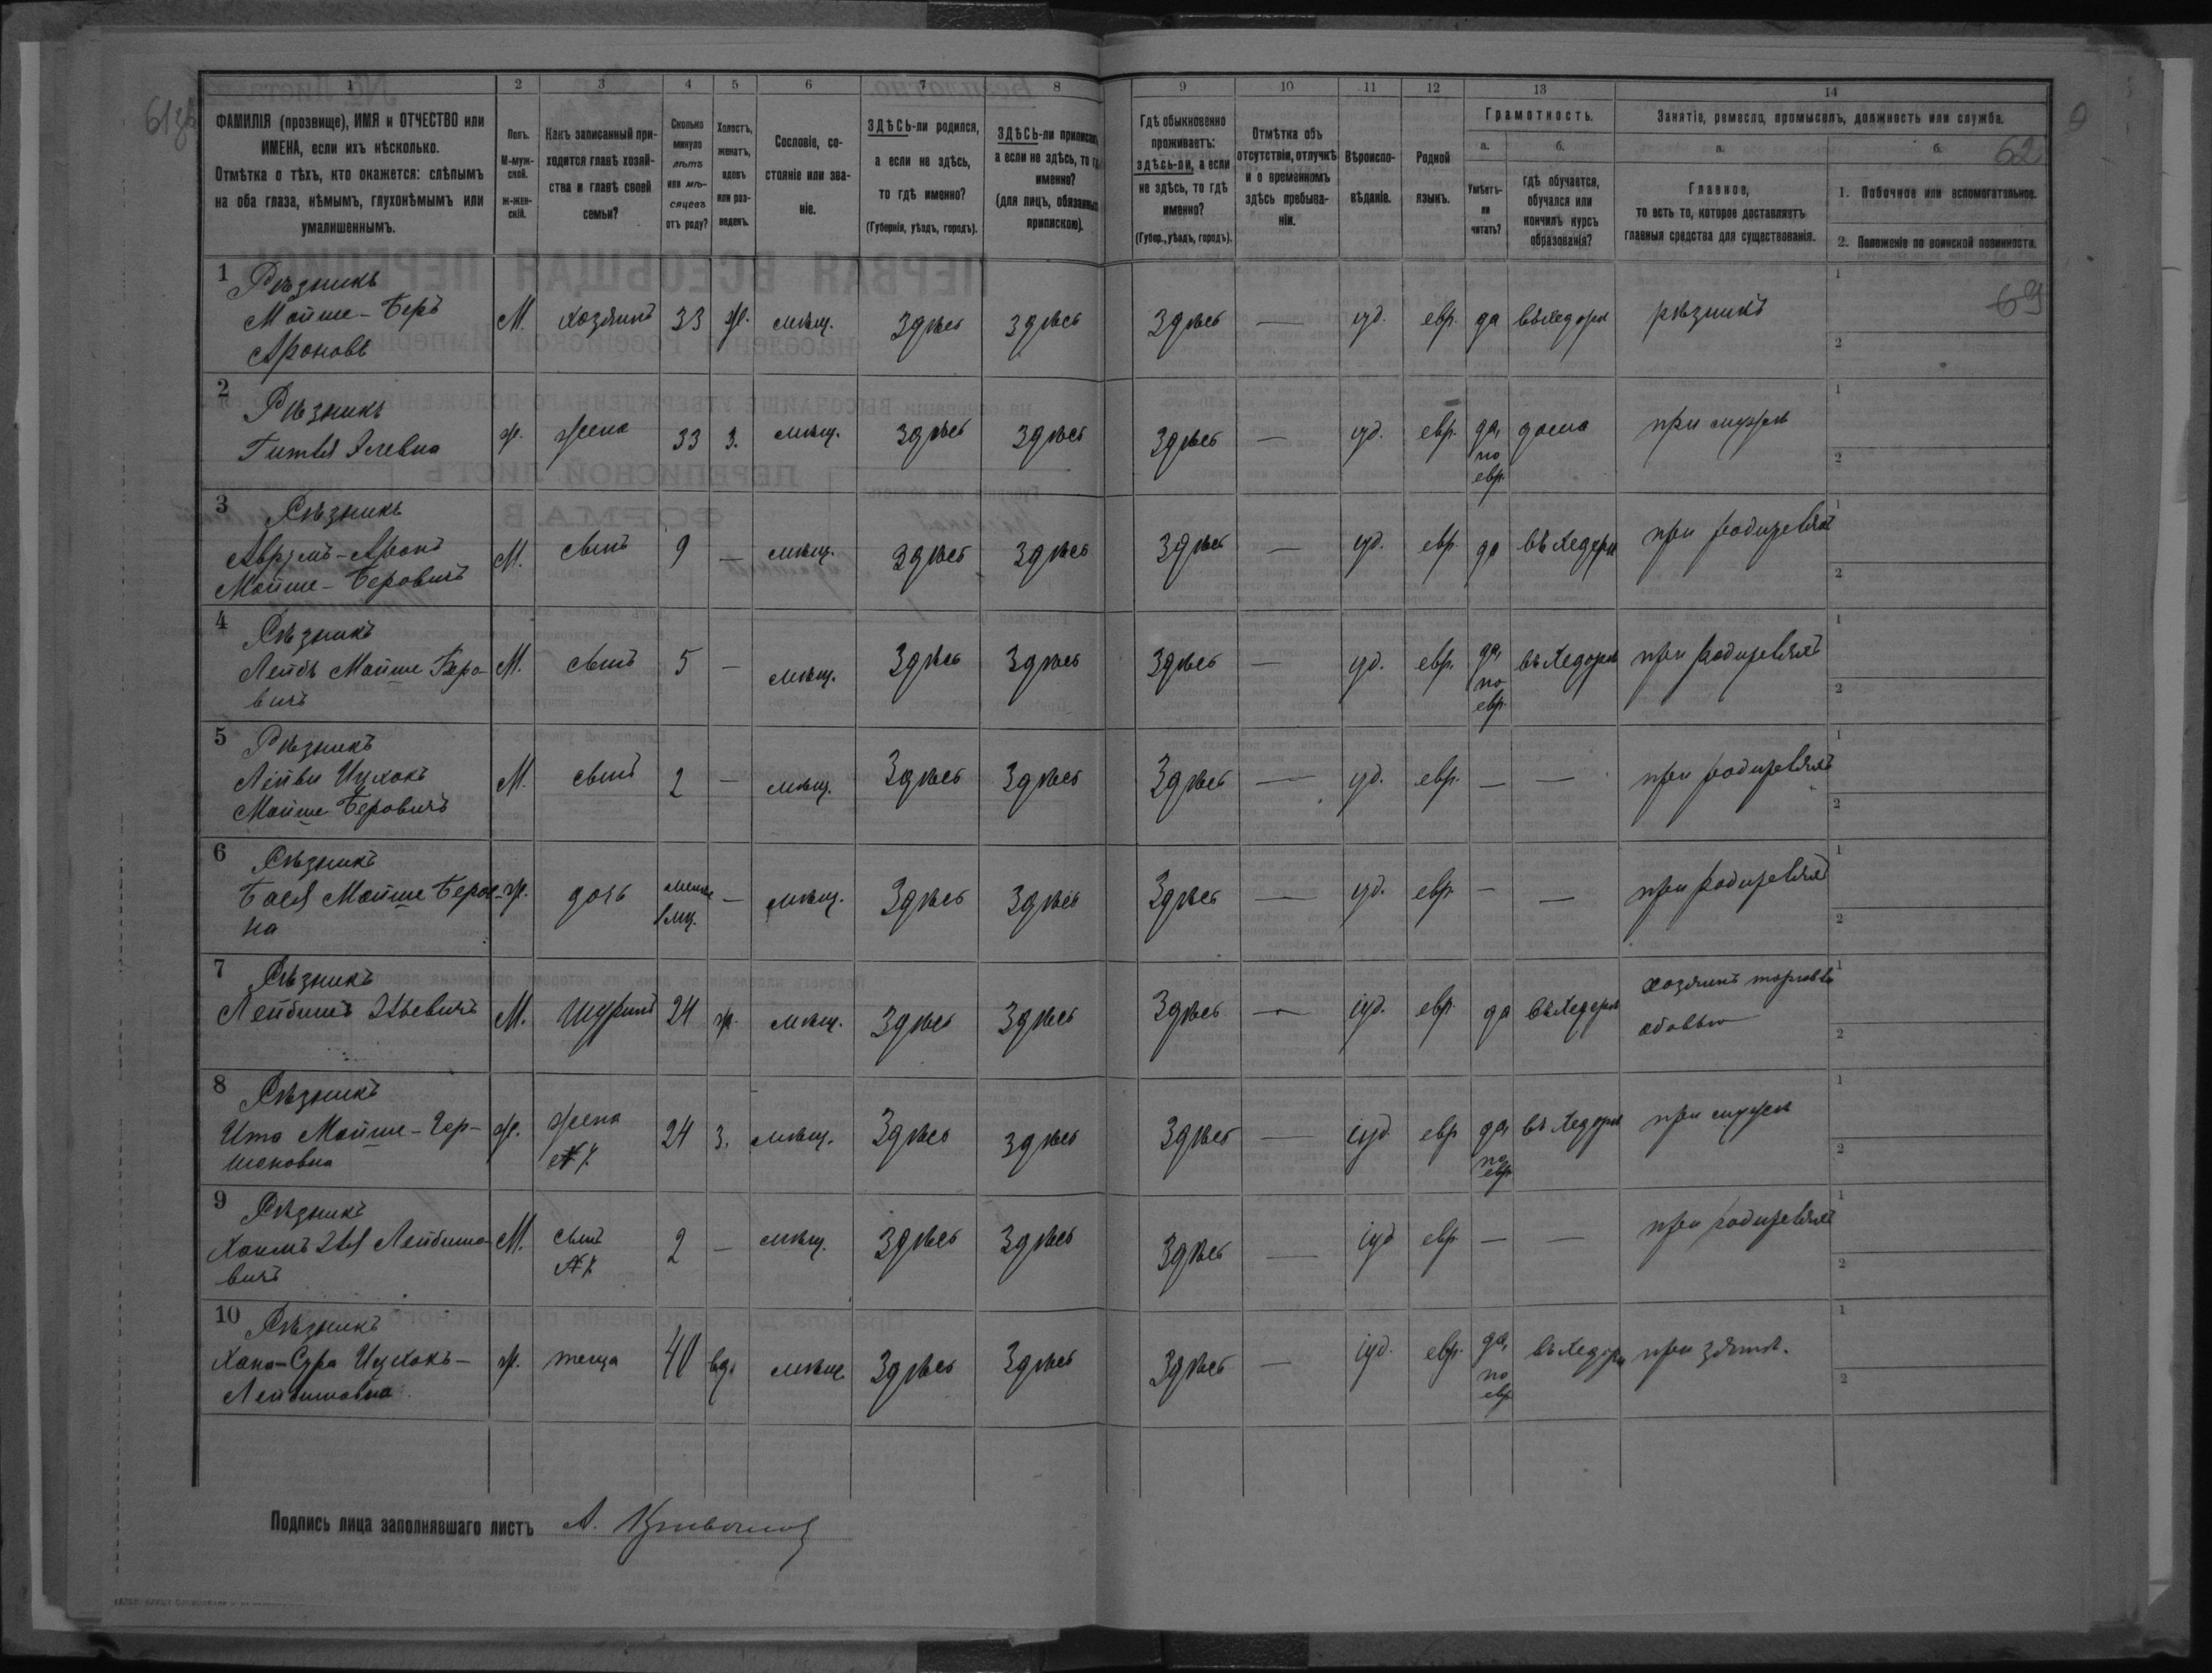 1 2 3 4 5 6 7 8 9 10 11 12 13 14
ФАМИЛІЯ (прозвище), ИМЯ и ОТЧЕСТВО или
ИМЕНА, если ихъ нѣсколько.
Отмѣтка о тѣхъ, кто окажется: слѣпымъ
на оба глаза, нѣмымъ, глухонѣмымъ или
умалишеннымъ.
Полъ.
М-муж-
ской.
Ж-жен-
скій.
Какъ записанный при-
ходится главѣ хозяй-
ства и главѣ своей
семьи?
Сколько
минуло
лѣтъ
или мѣ-
сяцевъ
отъ роду?
Холостъ,
женатъ,
вдовъ
или раз-
веденъ.
Сословіе, со-
стояніе или зва-
ніе.
ЗДѢСЬ-ли родился,
а если не здѣсь,
то гдѣ именно?
(Губернія, уѣздъ, городъ).
ЗДѢСЬ-ли приписанъ
а если не здѣсь, то гдѣ
именно?
(для лицъ, обязанныхъ
припискою).
Гдѣ обыкновенно
проживаетъ:
здѣсь-ли, а если
не здѣсь, то гдѣ
именно?
(Губер., уѣздъ, городъ).
Отмѣтка объ
отсутствіи, отлучкѣ
и о временномъ
здѣсь пребыва-
ніи.
Вѣроиспо-
вѣданіе.
Родной
языкъ.
Грамотность.
а.
Умѣетъ-
ли
читать?
б.
Гдѣ обучается,
обучался или
кончилъ курсъ
образованія?
Занятіе, ремесло, промыселъ, должность или служба.
а.
Главное,
то есть то, которое доставляетъ
главныя средства для существованія.
б. 62
1. Побочное или вспомогательное.
2. Положеніе по воинской повинности.
69
1 Рѣзникъ
Мойше-Беръ
Ароновъ
М. хозяинъ 33 ж. мѣщ. Здѣсь здѣсь Здѣсь — іуд. евр. да въ Хедерѣ рѣзникъ
2 Рѣзникъ
Гитля
ж. жена 33 з. мѣщ. здѣсь здѣсь Здѣсь — іуд. евр. да, по евр. дома при мужѣ
3 Рѣзникъ
Аврумъ-Аронъ
Мойше-Беровичъ
М. сынъ 9 — мѣщ. здѣсь здѣсь Здѣсь — іуд. евр. да въ Хедерѣ при родителяхъ
4 Рѣзникъ
Лейбъ Мойше Беро-
вичъ
М. сынъ 5 — мѣщ. Здѣсь Здѣсь Здѣсь — іуд. евр. да, по евр. въ Хедерѣ при родителяхъ
5 Рѣзникъ
Лейви Ицхокъ
Мойше Беровичъ
М. сынъ 2 — мѣщ. Здѣсь Здѣсь Здѣсь — іуд. евр. — — при родителяхъ
6 Рѣзникъ
Бася Мойше Беров-
на
ж. дочь менѣе 1 мц. — мѣщ. Здѣсь Здѣсь Здѣсь — іуд. евр. — — при родителяхъ
7 Рѣзникъ
Лейбишъ
М. Шуринъ 24 ж. мѣщ. Здѣсь Здѣсь Здѣсь — іуд. евр. да въ Хедерѣ хозяинъ торговл
обовью
8 Рѣзникъ
Ита Мойше-Гер-
шоновна
ж. жена №7. 24 з. мѣщ. Здѣсь здѣсь Здѣсь — іуд. евр. да, по евр. въ Хедерѣ при мужѣ
9 Рѣзникъ
Хаимъ Лейбишо-
вичъ
М. сынъ №7. 2 — мѣщ. Здѣсь Здѣсь Здѣсь — іуд. евр. — — при родителяхъ
10 Рѣзникъ
Хана-Сура Ицхокъ-
Лейбишовна
ж. теща 40 вд. мѣщ. Здѣсь Здѣсь Здѣсь — іуд. евр. да, по евр. въ Хедерѣ при зятѣ.
Подпись лица заполнявшаго листъ А.